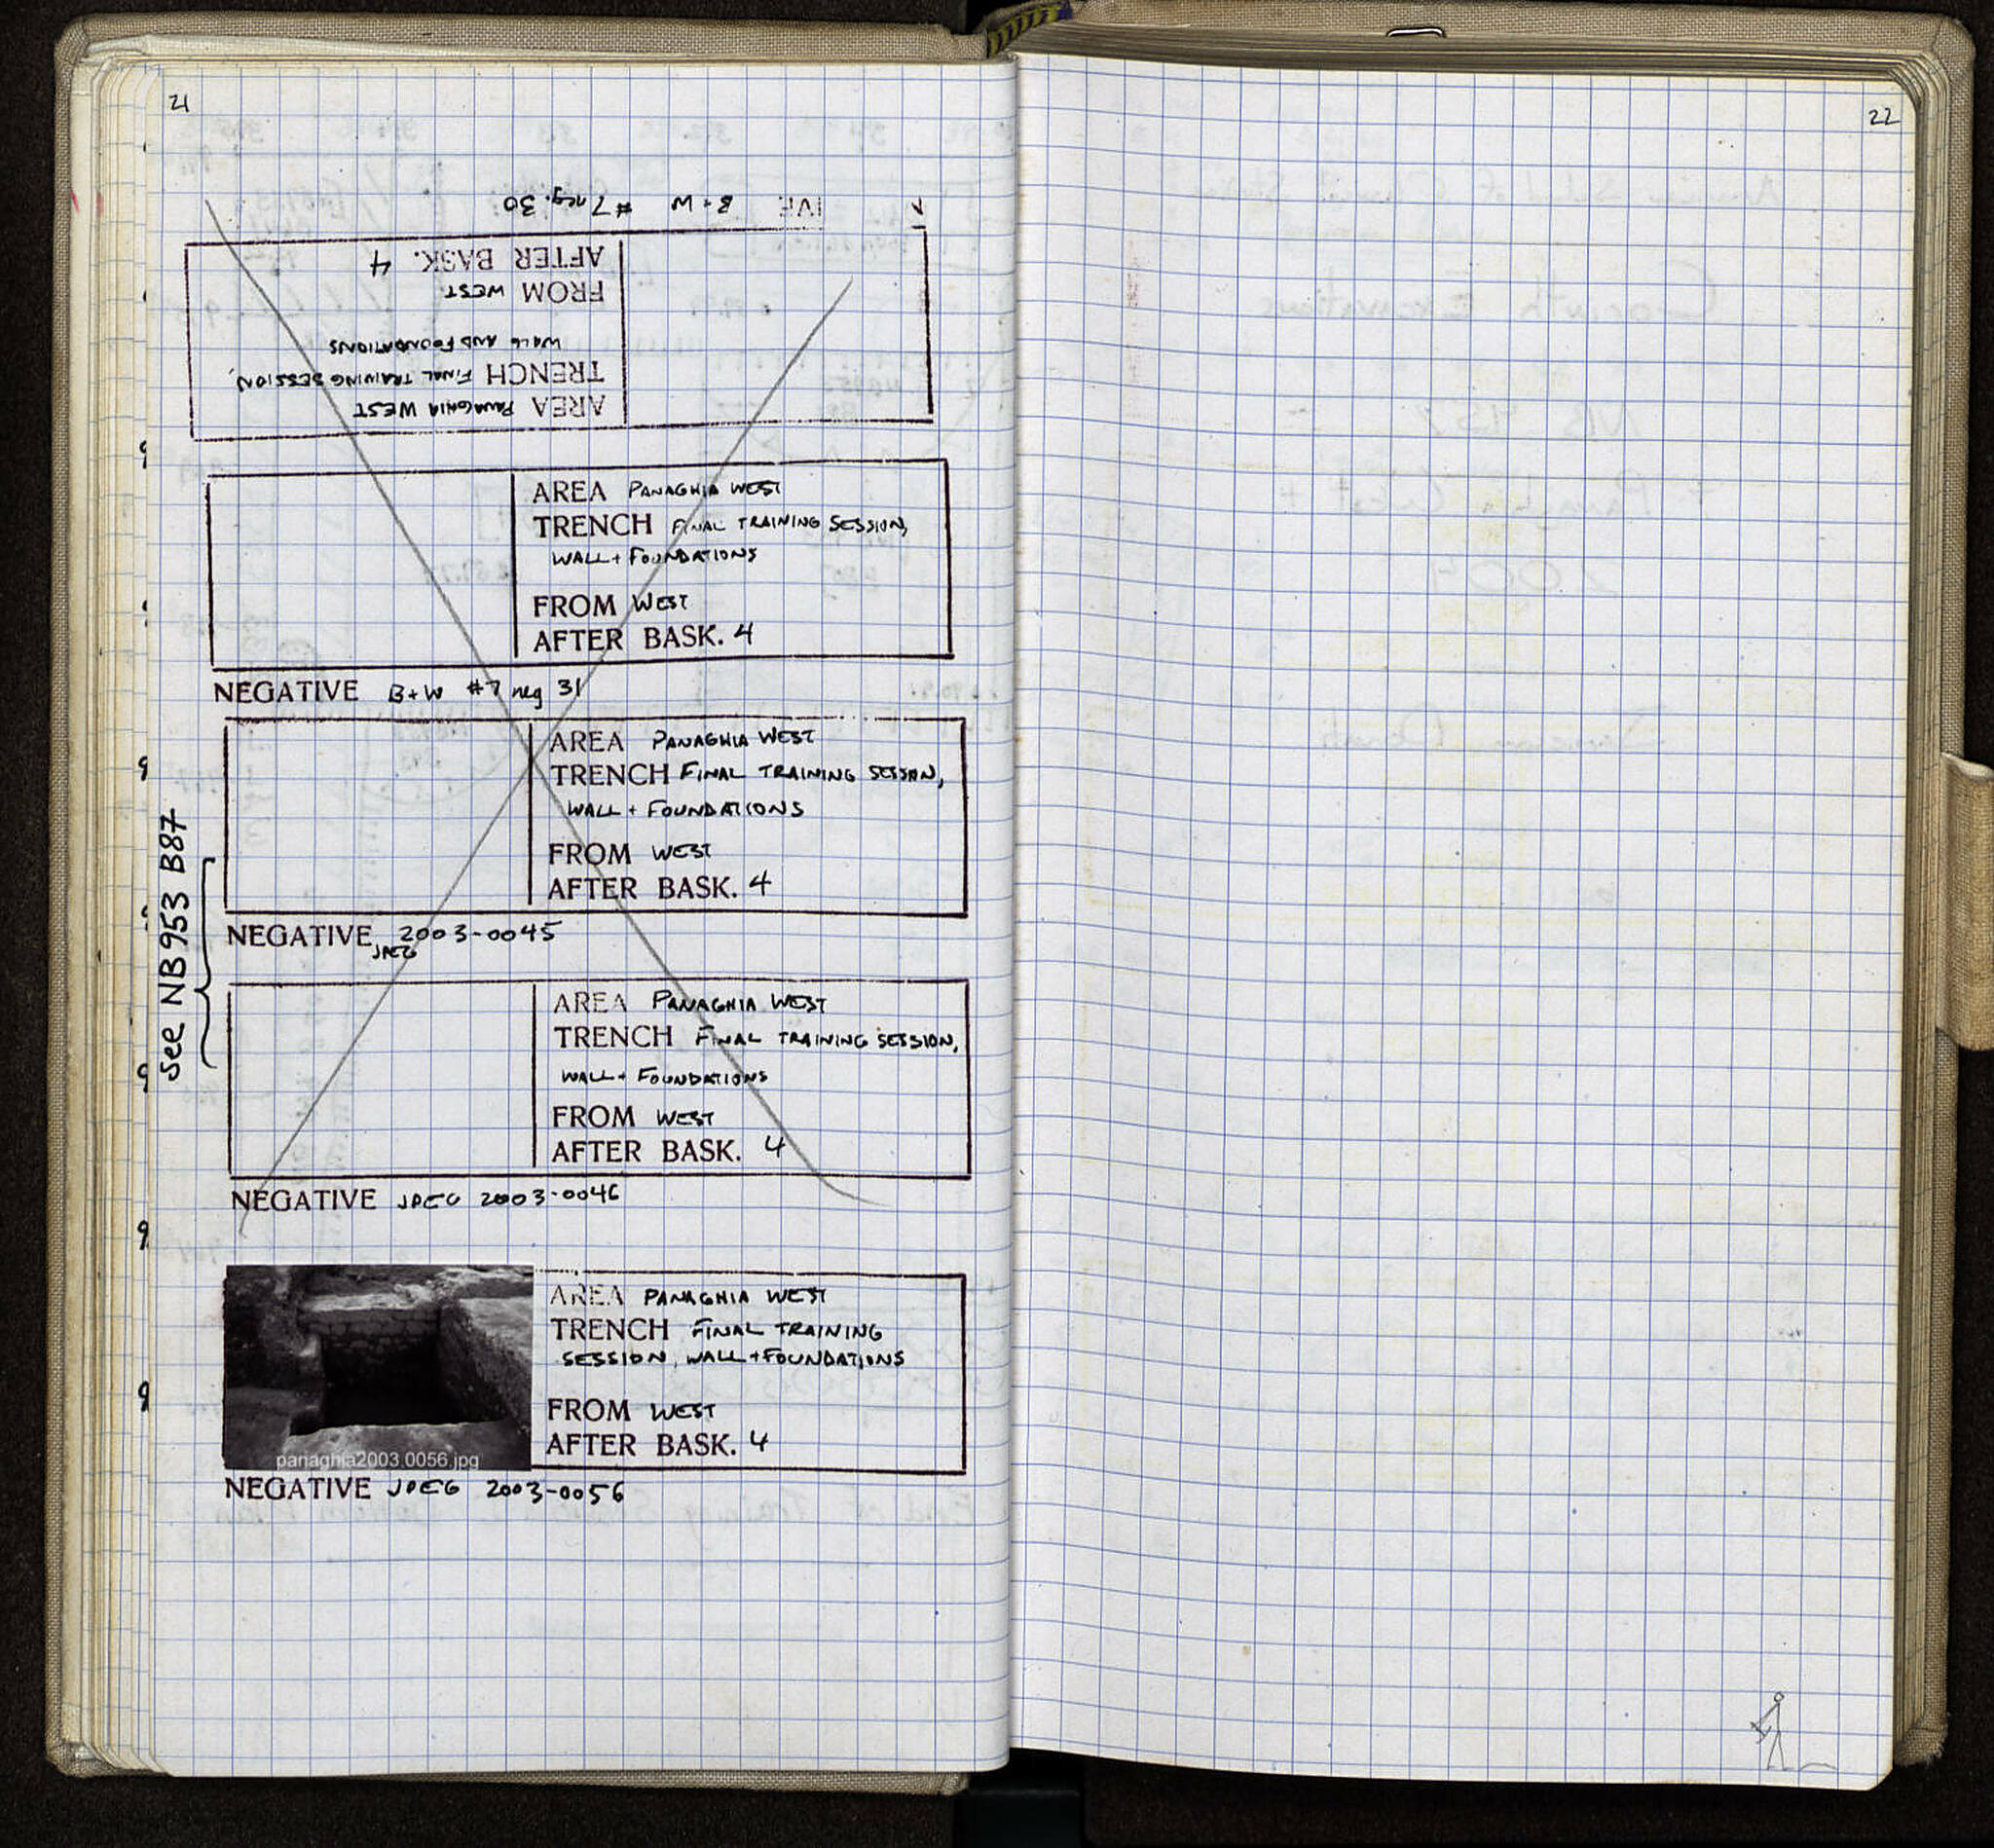 21
B+W #7 neg. 30
AFTER BASK. 4
FROM WEST
WALL AND FOUNDATIONS
TRENCH FINAL TRAINING SESSION,
AREA PANAGHIA WEST
AREA PANAGHIA WEST
TRENCH FINAL TRAINING SESSION,
WALL + FOUNDATIONS
FROM WEST
AFTER BASK. 4
NEGATIVE B+W #7 neg 31
AREA PANAGHIA WEST
TRENCH FINAL TRAINING SESSION,
WALL + FOUNDATIONS
FROM WEST
AFTER BASK. 4
NEGATIVE 2003-0045
JPEG
See NB 953 B87
AREA PANAGHIA WEST
TRENCH FINAL TRAINING SESSION,
WALL + FOUNDATIONS
FROM WEST
AFTER BASK. 4
NEGATIVE JPEG 2003-0046
AREA PANAGHIA WEST
TRENCH FINAL TRAINING
SESSION, WALL + FOUNDATIONS
FROM WEST
AFTER BASK. 4
panaghia2003 0056.jpg
NEGATIVE JPEG 2003-0056
22